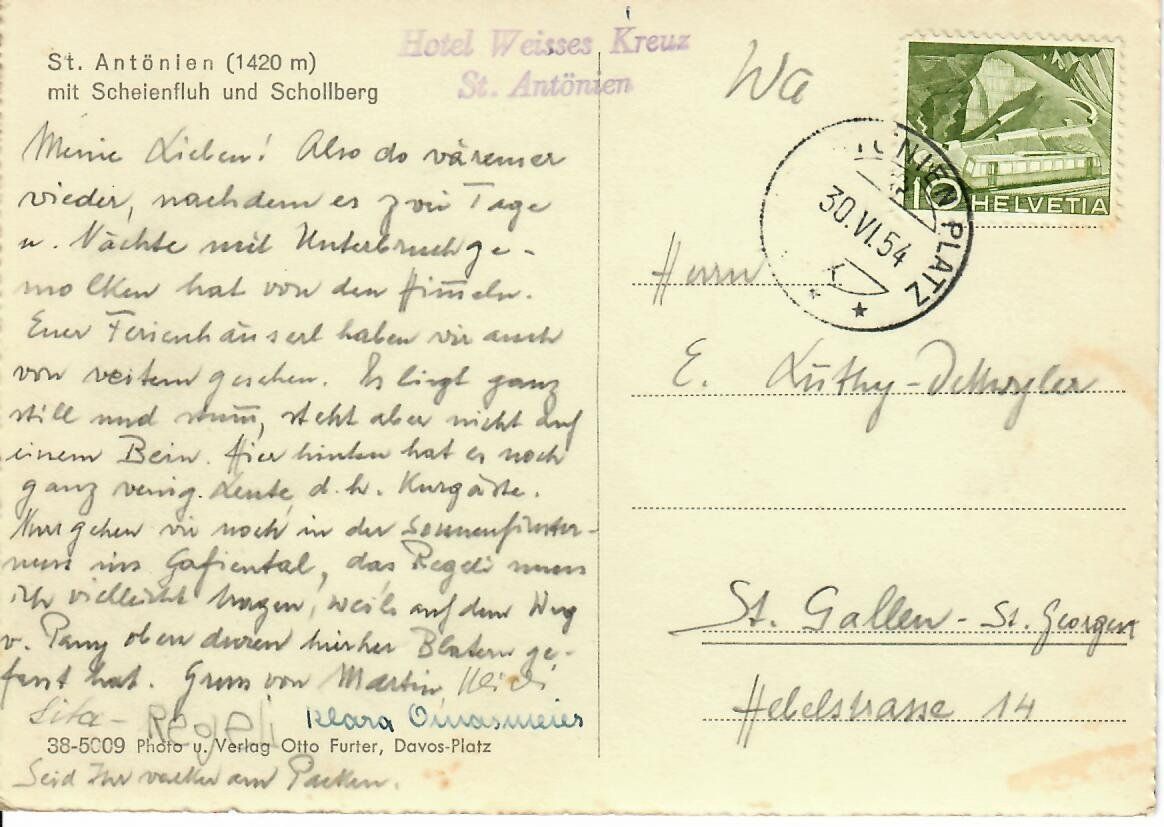 St. Antönien (1420 m)
mit Scheienfluh und Schollberg
Hotel Weisses Kreuz
St. Antönien
Meine Lieben! Also do wäremer
wieder, nachdem es zwei Tage
u. Nächte mit Unterbruch ge-
molken hat von den Him̄eln.
Euer Ferienhäuserl haben wir auch
von weitem gesehen. Es liegt ganz
still und stum̄, steht aber nicht auf
einem Bein. Hier hinten hat es noch
ganz wenig Leute, d. h. Kurgäste.
Nun gehen wir noch in der Sonnenfinster-
niss ins Gafiental, das Regeli muss
ich vielleicht tragen, weil's auf dem Weg
v. Pany oben duren hierher Blatern ge-
fasst hat. Gruss von Martin, Heidi
Lita - Regeli Klara
38-5009 Photo u. Verlag Otto Furter, Davos-Platz
Seid Ihr wacker am Packen.
Wa
10 HELVETIA
TÖNIEN PLATZ
30.VI.54
Herrn
E. Lüthy-
St. Gallen - St. Georgen
Hebelstrasse 14